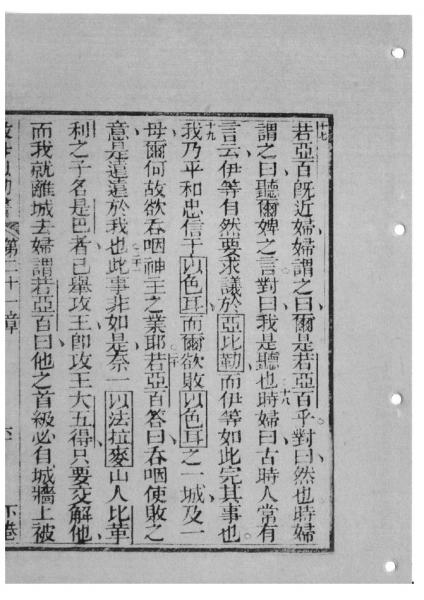 十七
若亞百既近婦婦謂之曰爾是若亞百乎對曰然也時婦
謂之曰聽爾婢之言對曰我是聽也十八時婦曰古時人常有
言云伊等自然要求議於亞比勒而伊等如此完其事也
十九
我乃平和忠信于以色耳而爾欲敗以色耳之一城及一
母爾何故欲吞咽神王之業耶二十若亞百答曰吞咽使敗之
意是遠遠於我也二十一此事非如是奈一以法拉麥山人比革
利之子名是巴者已舉攻王即攻王大五得只要交解他
而我就離城去婦謂若亞百曰他之首級必有城牆上被
第二十一章
下卷